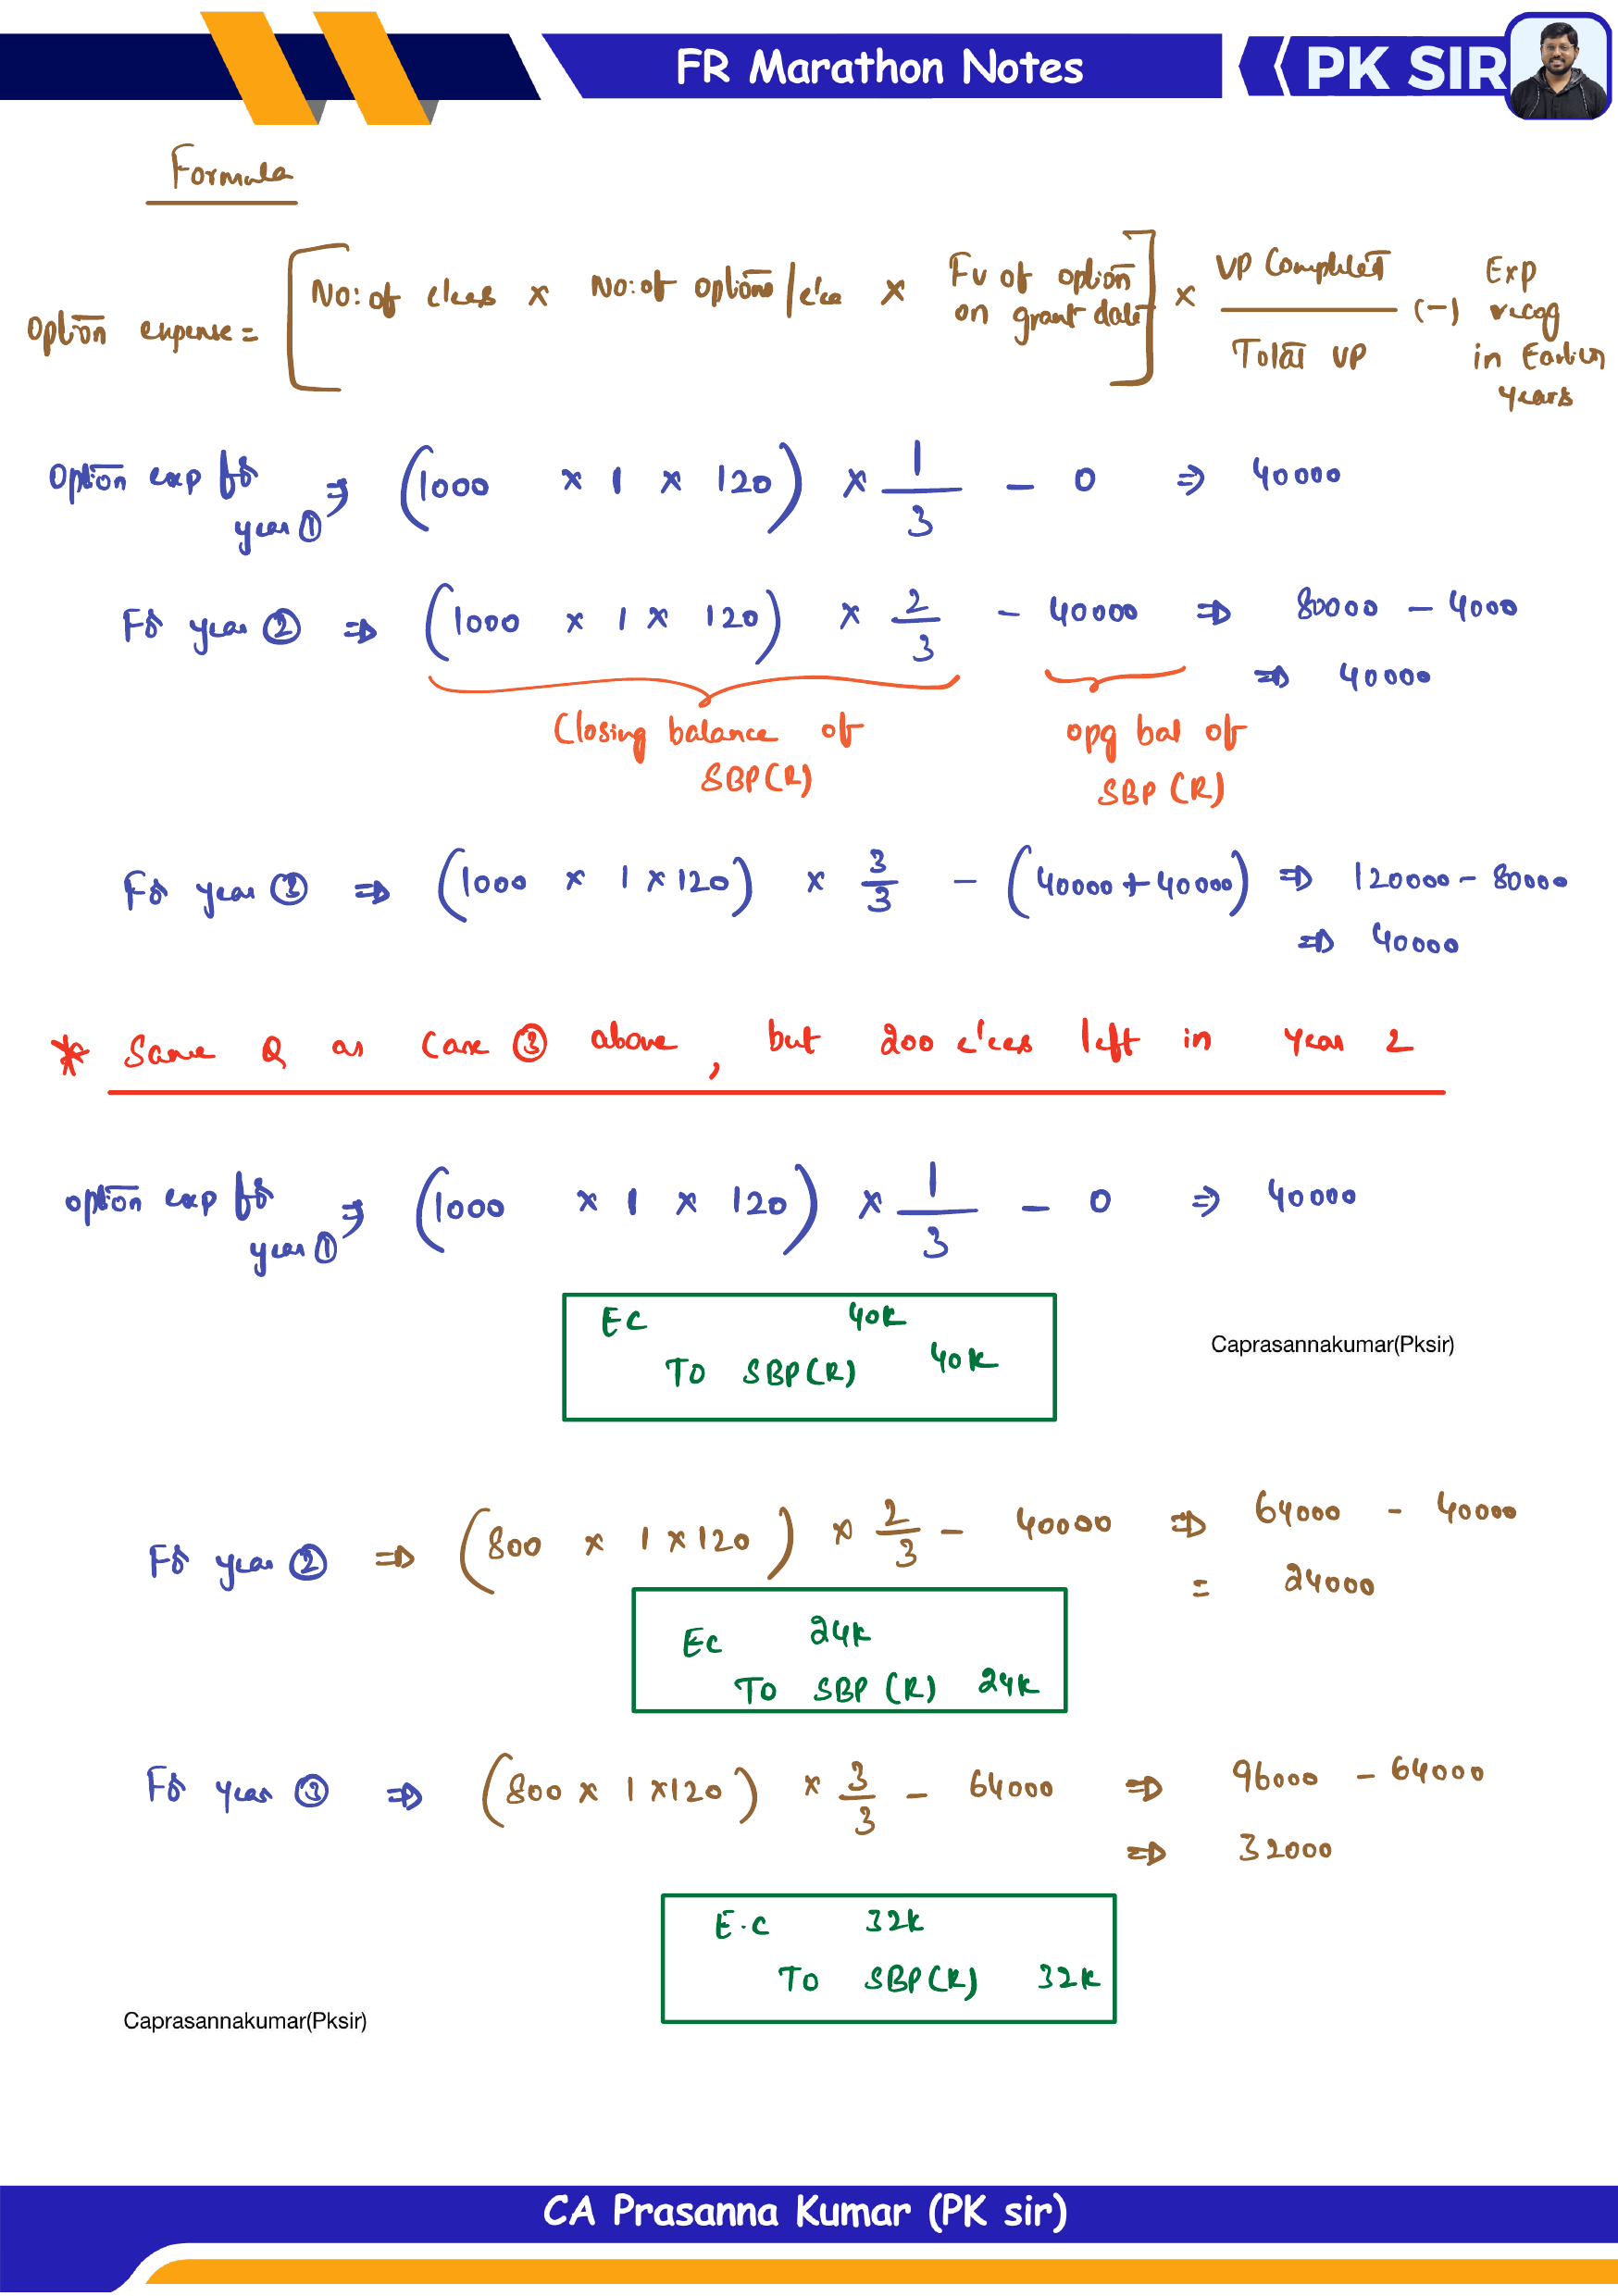 FR Marathon Notes
PK SIR
Formula
Option expense = [No: of e'ees × No: of options/e'ee × Fv of option on grant date] × VP Completed / Total VP (-) Exp recog in Earlier years
Option exp for year ① ⇒ (1000 × 1 × 120) × 1/3 - 0 ⇒ 40000
For year ② ⇒ (1000 × 1 × 120) × 2/3 - 40000 ⇒ 80000 - 4000
⇒ 40000
Closing balance of SBP(R)
opg bal of SBP (R)
For year ③ ⇒ (1000 × 1 × 120) × 3/3 - (40000 + 40000) ⇒ 120000 - 80000
⇒ 40000
* Same Q as Case ③ above, but 200 e'ees left in year 2
option exp for year ① ⇒ (1000 × 1 × 120) × 1/3 - 0 ⇒ 40000
EC 40K
TO SBP(R) 40K
Caprasannakumar(Pksir)
For year ② ⇒ (800 × 1 × 120) × 2/3 - 40000 ⇒ 64000 - 40000
= 24000
EC 24K
TO SBP (R) 24K
For year ③ ⇒ (800 × 1 × 120) × 3/3 - 64000 ⇒ 96000 - 64000
⇒ 32000
E.C 32K
TO SBP(R) 32K
Caprasannakumar(Pksir)
CA Prasanna Kumar (PK sir)